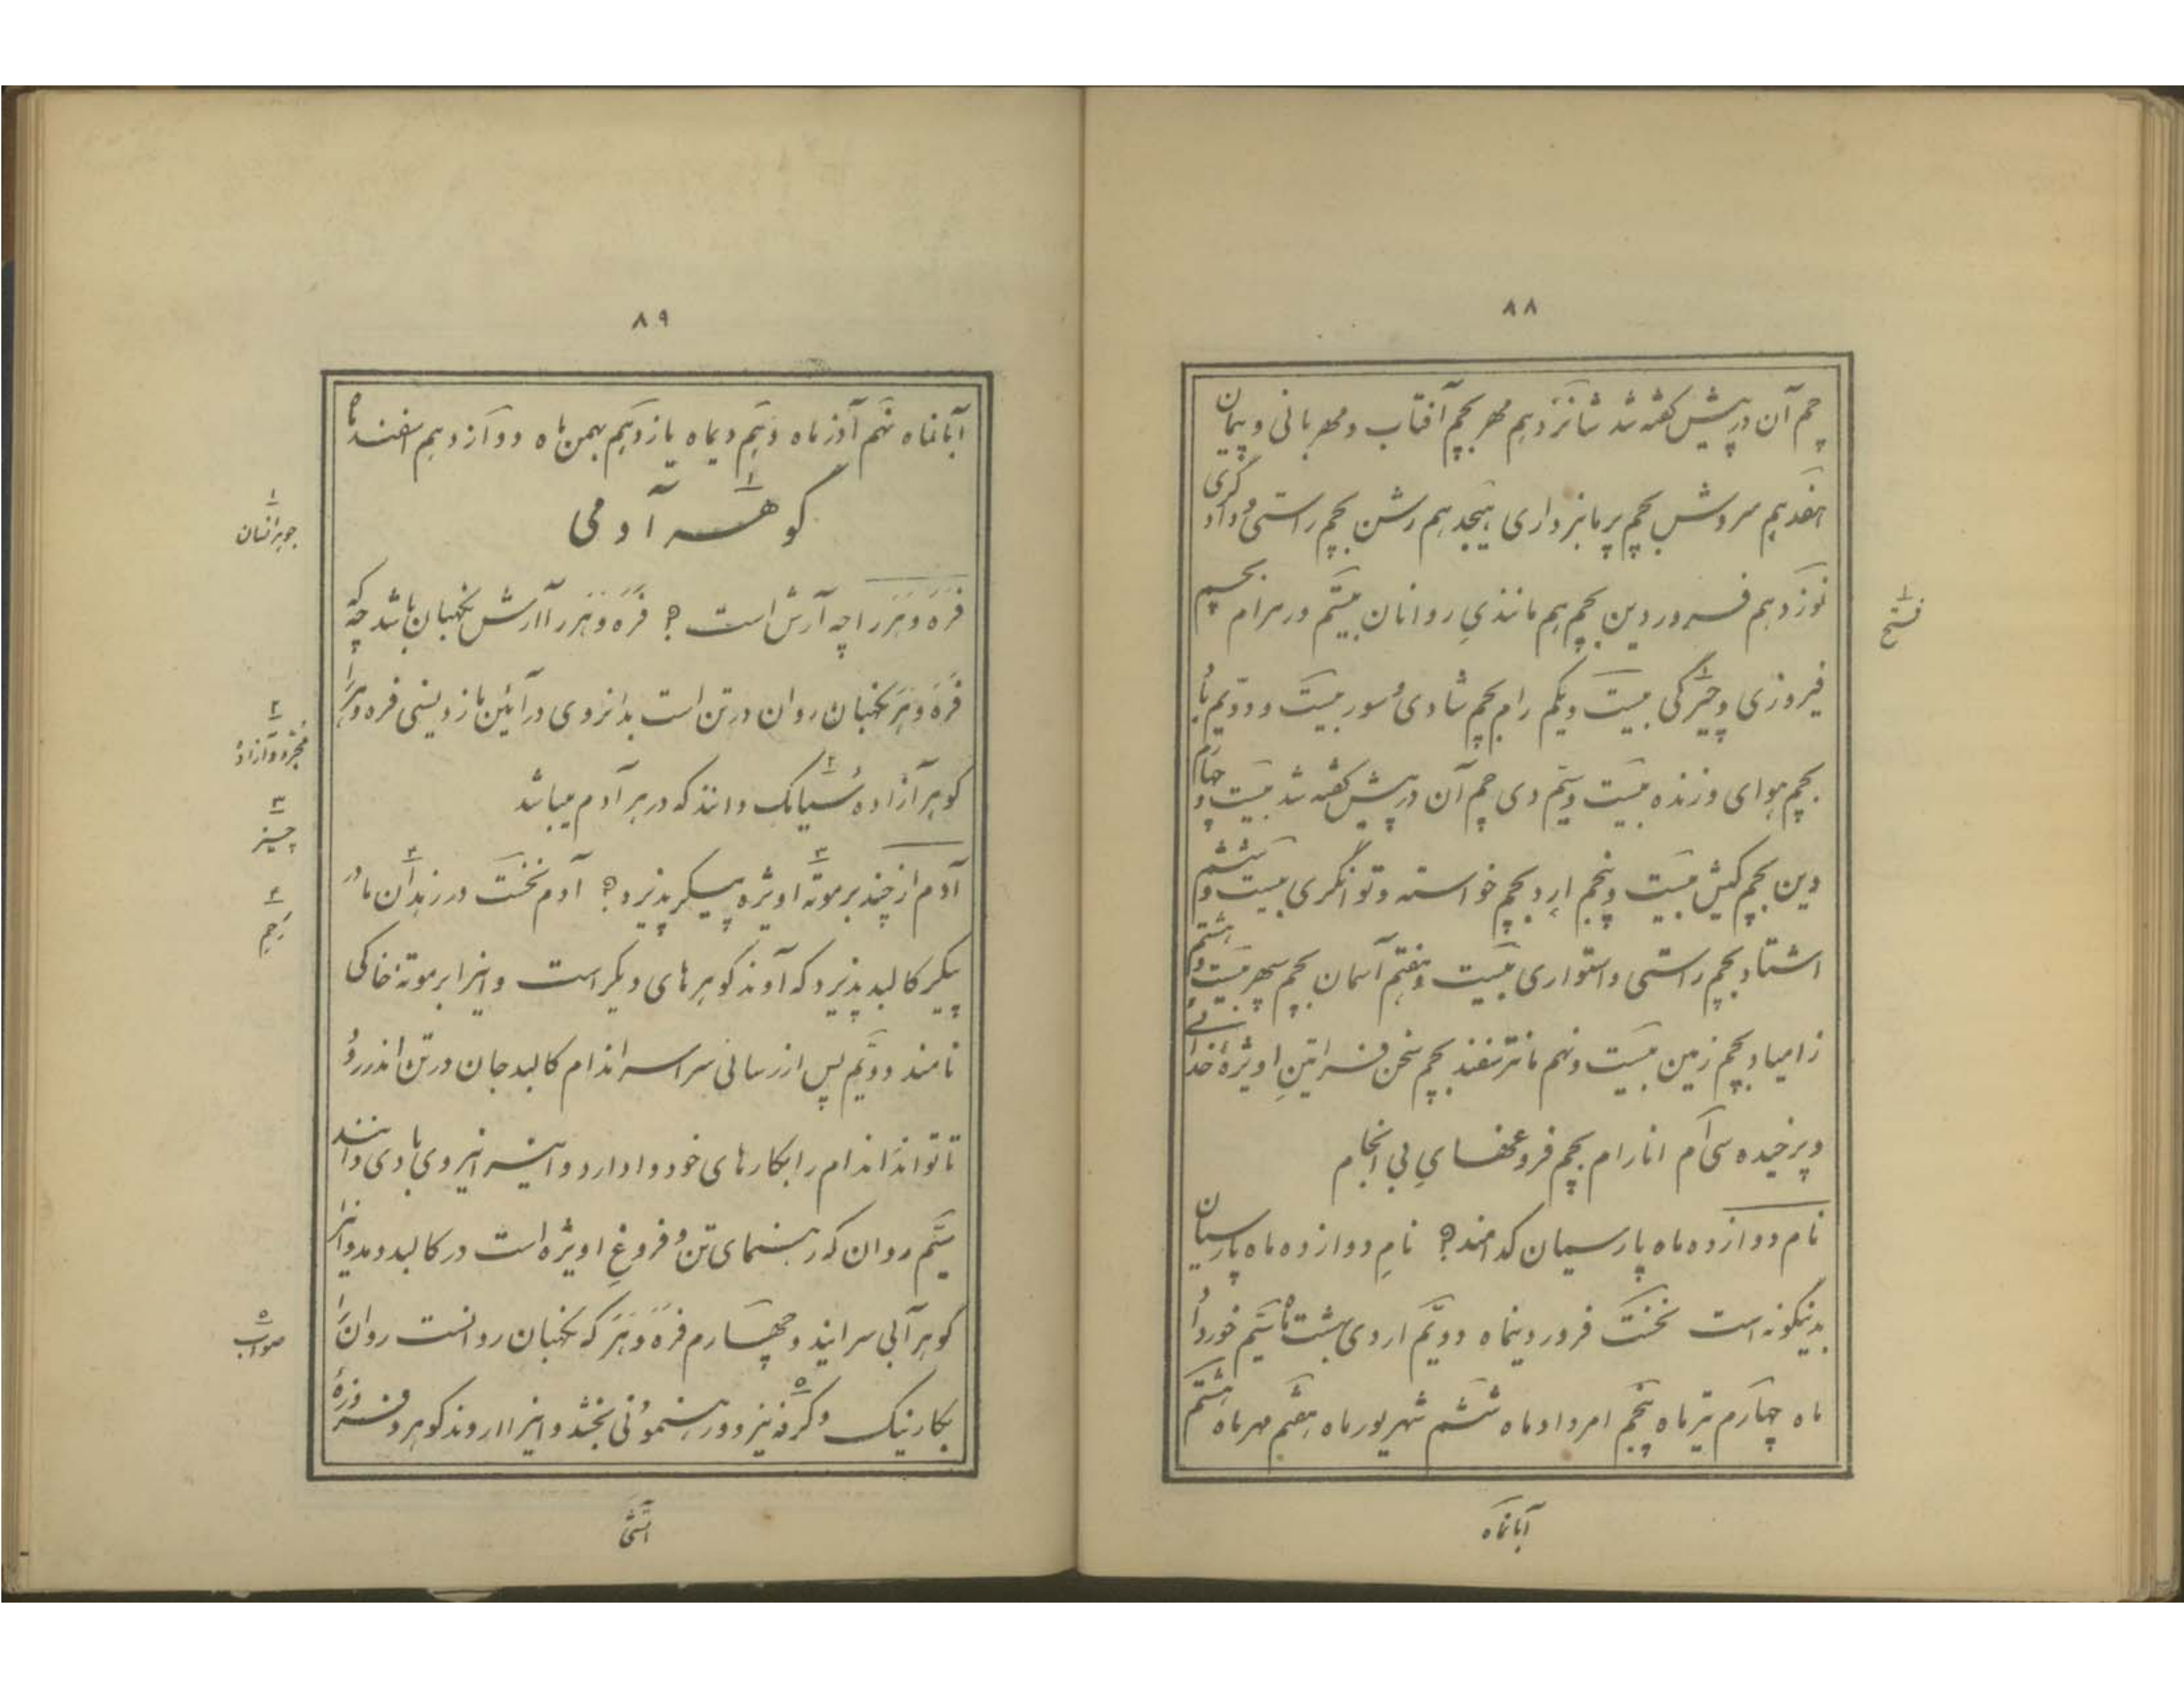 ۸۸
چم آن در پیش گفته شد شانزدهم مهر بچم آفتاب و مهربانی و پیمان
هفدهم سروش بچم پرمانبرداری هیجدهم رشن بچم راستی و دادگری
نوزدهم فروردین بچم هم مانندیِ روانان بیستم ورهرام بچم
فیروزی و چیرگی بیست و یکم رام بچم شادی و سور بیست و دویّم باد
بچم هوای وزنده بیست و سیّم دی چم آن در پیش گفته شد بیست و چهارم
دین بچم کیش بیست و پنجم ارد بچم خواسته و توانگری بیست و ششم
اشتاد بچم راستی و استواری بیست و هفتم آسمان بچم سپهر بیست و هشتم
زامیاد بچم زمین بیست و نهم مانترسفند بچم سخن فراتینِ اویژهٔ خدائے
و پرخیده سی‌اُم انارام بچم فروغهای بی انجام
نام دوازده ماه پارسیان کدامند؟ نامِ دوازده ماه پارسیان
بدینگونه است نخست فروردینماه دویّم اردی بهشت ماه سیّم خورداد
ماه چهارم تیر ماه پنجم امرداد ماه ششم شهریور ماه هفتم مهر ماه هشتم
آبانماه
۱
فتح
۸۹
آبانماه نهم آذرماه دهم دیماه یازدهم بهمن ماه دوازدهم اسفند ماه
گوهر آدمی
فَرَه وَهَر را چه آرش است؟ فَرَه وَهَر را آرش نگهبان باشد چه که
فَرَه وَهَر نگهبان روان در تن است بدانروی در آئین مازدیسنی فره وهر را
گوهر آزاده سُیامک دانند که در هر آدم میباشد
آدم از چند برموتهٔ اویژه پیکر پذیرد؟ آدم نخست در زهدان مادر
پیکر کالبد پذیرد که آوند گوهرهای دیگر است و اینرا برموتهٔ خاکی
نامند دویّم پس از رسائی سراسر اندام کالبد جان در تن اندر رود
تا تواند اندام را بکارهای خود وادارد و این را نیروی بادی دانند
سیّم روان که رهنمای تن و فروغِ اویژه است در کالبد ودمد و اینرا
گوهر آبی سرایند و چهارم فَرَه وَهَر که نگهبان روانست روان را
بکار نیک و کرفه نیز و ور رهنمونی بخشد و اینرا اروند گوهر و فروزهٔ
اتشی
۱
جوهر انسان
۲
مجرد و آزاد
۳
چیز
۴
رحم
۵
صواب